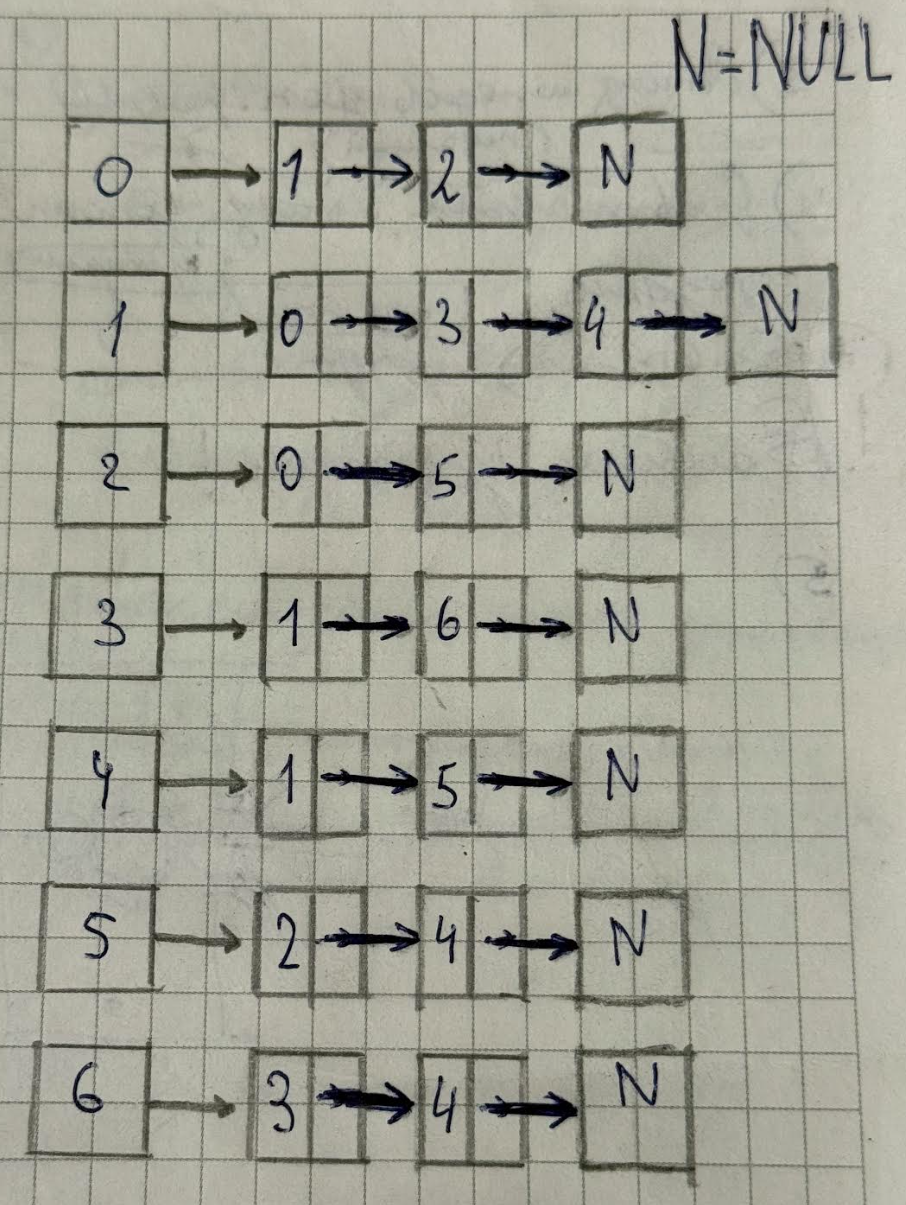 N=NULL
0 → 1 → 2 → N
1 → 0 → 3 → 4 → N
2 → 0 → 5 → N
3 → 1 → 6 → N
4 → 1 → 5 → N
5 → 2 → 4 → N
6 → 3 → 4 → N